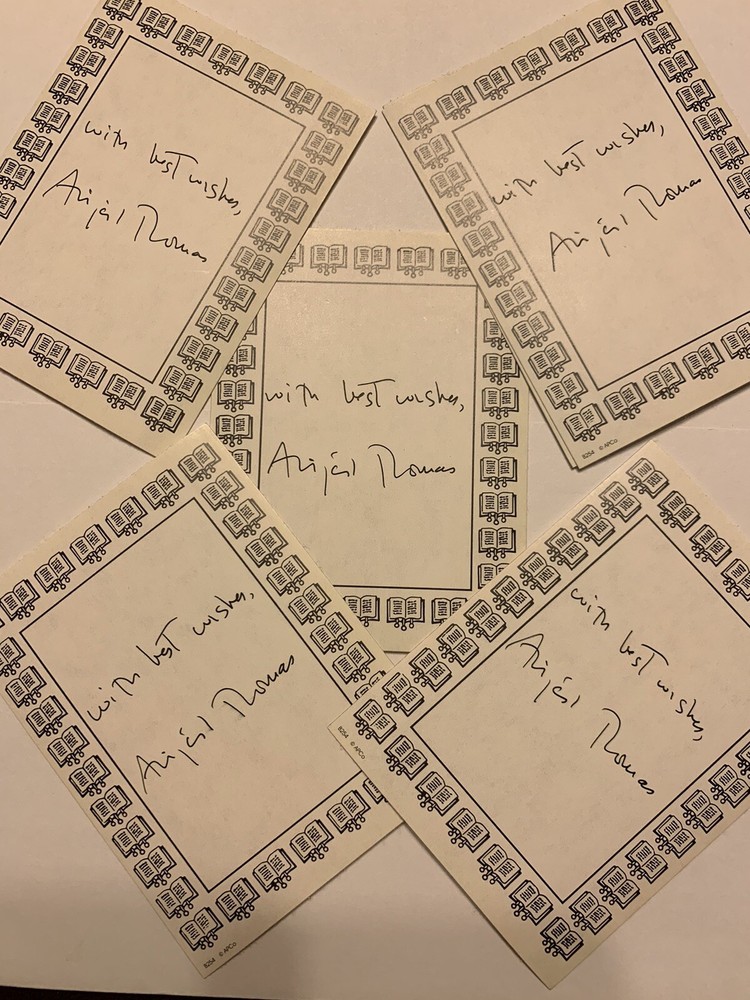 with best wishes,
Abigail Thomas
with best wishes,
Abigail Thomas
8254 © APCo
with best wishes,
Abigail Thomas
with best wishes,
Abigail Thomas
8254 © APCo
with best wishes,
Abigail Thomas
8254 © APCo